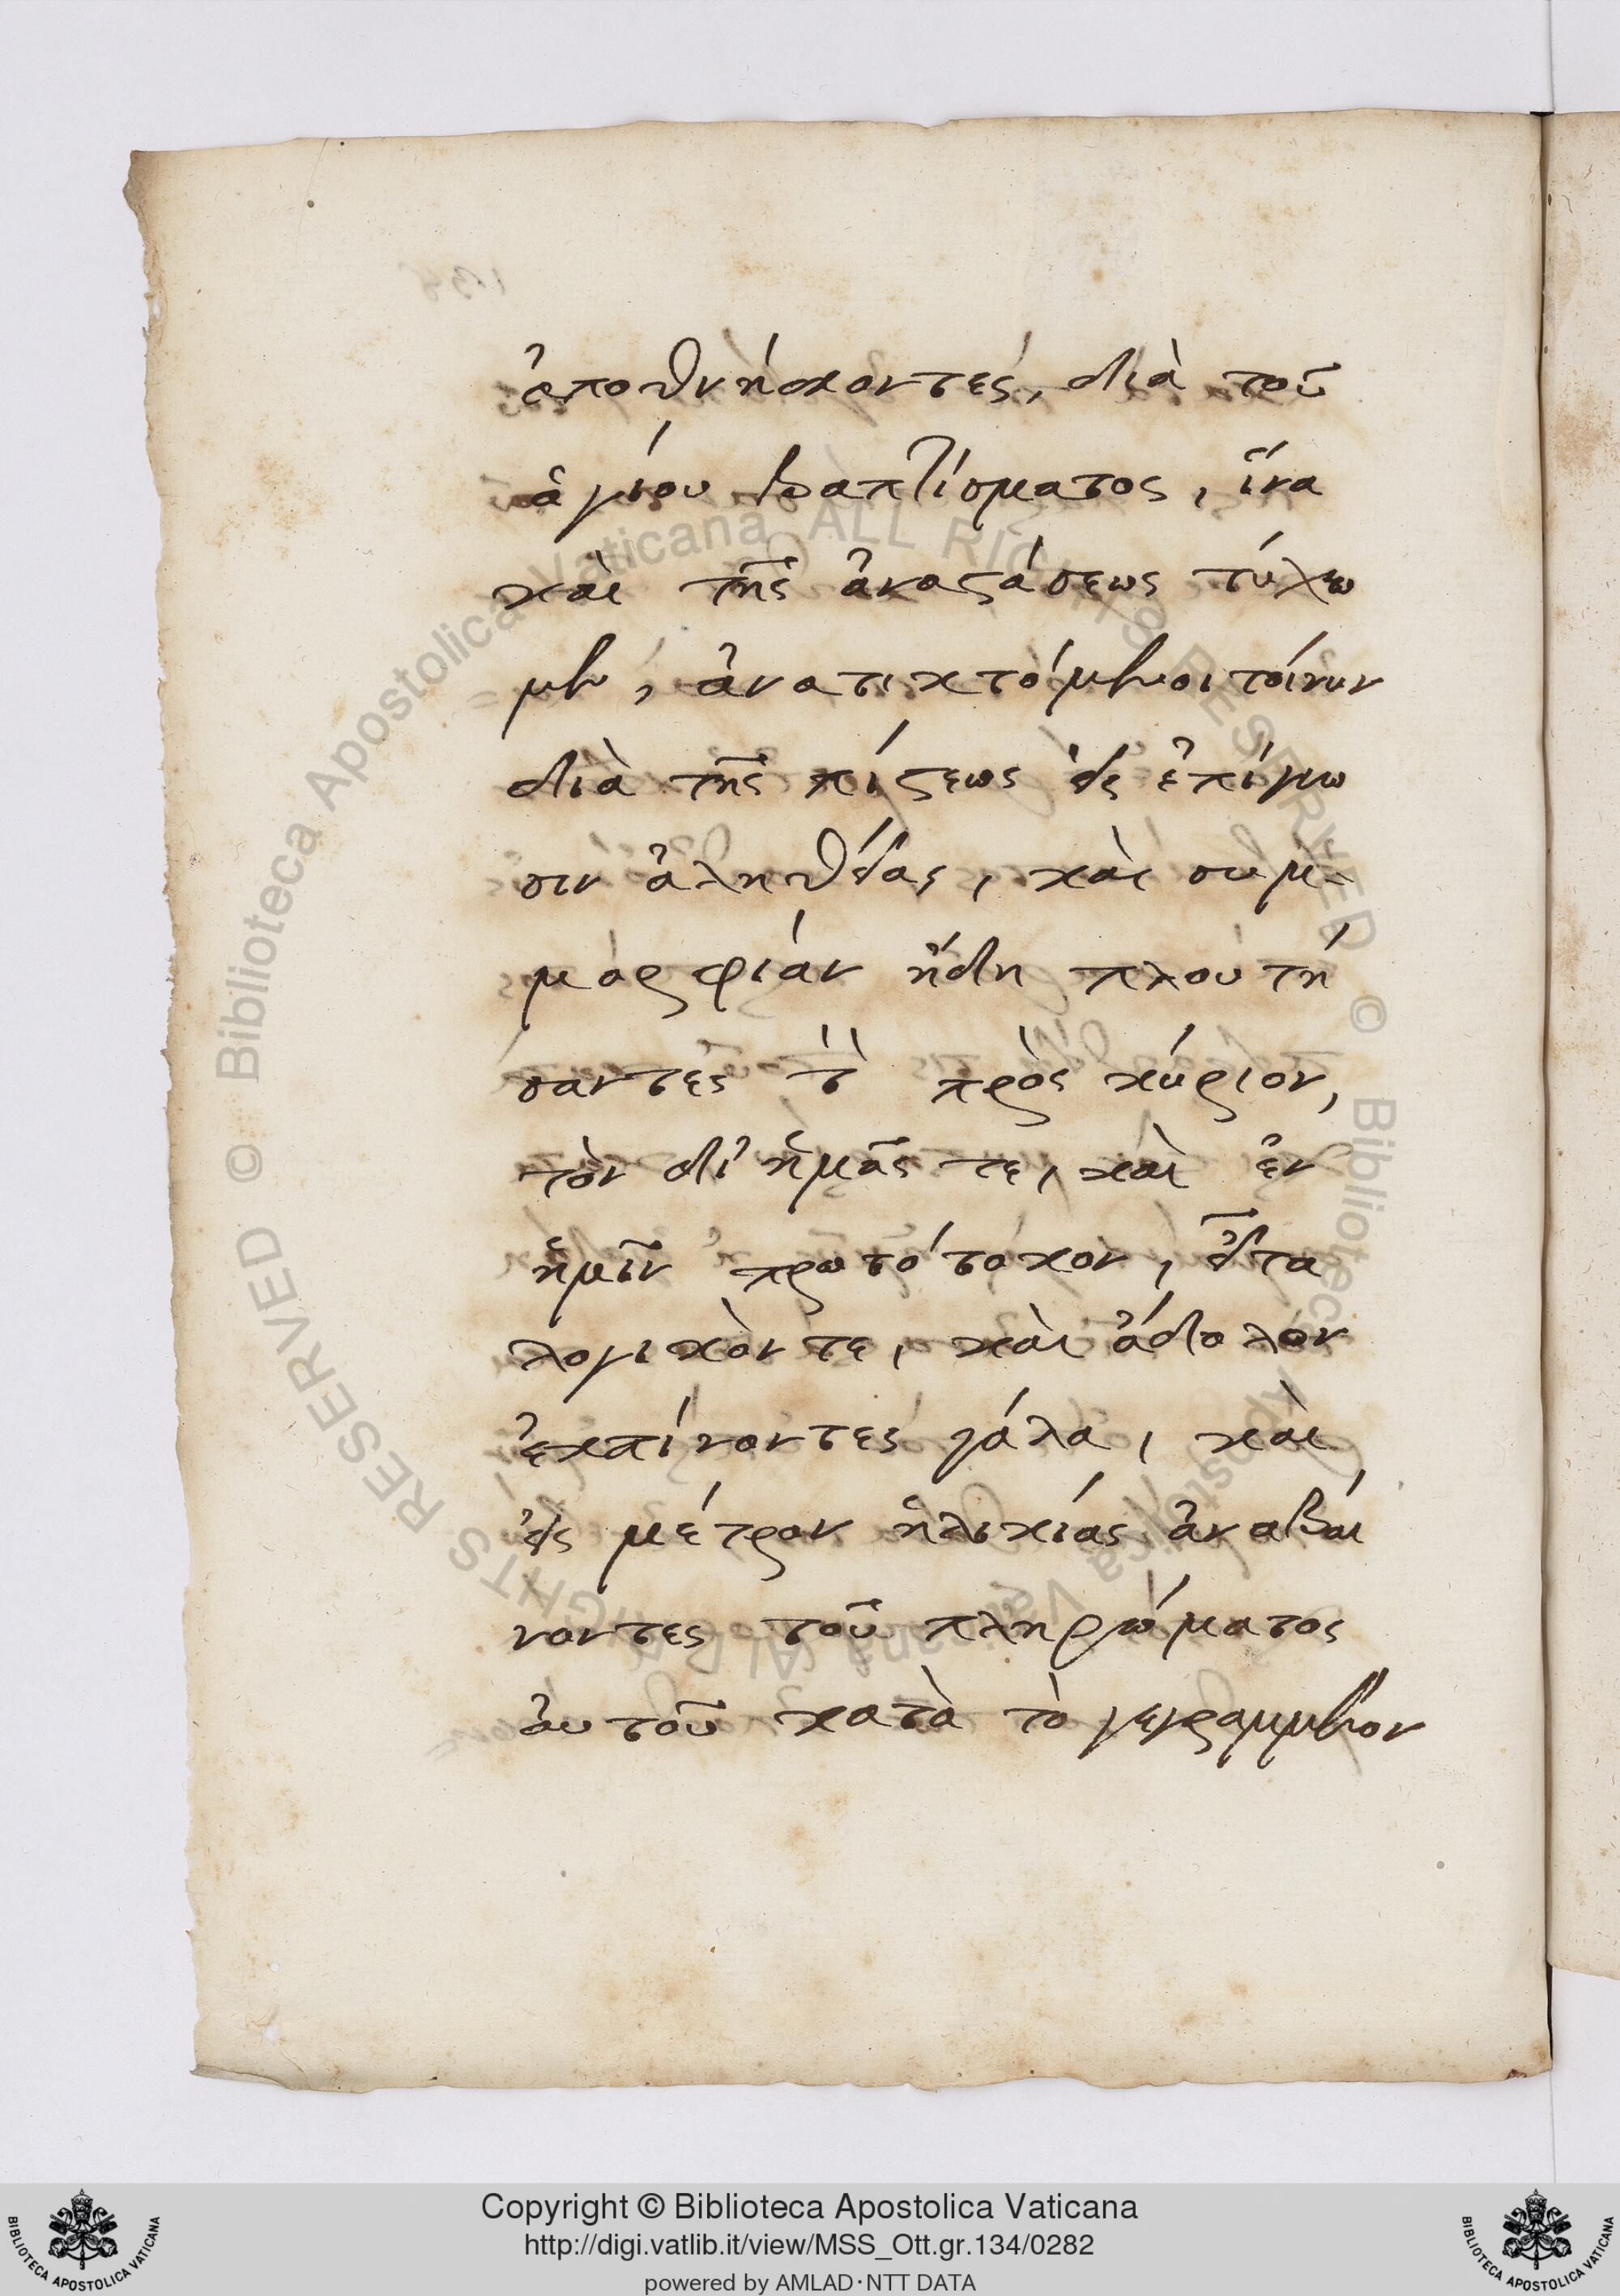 ἀποθνήσκοντες, διὰ τοῦ
ἁγίου βαπτίσματος, ἵνα
καὶ τῆς ἀναστάσεως τύχω
μεν, ἀνατικτόμενοι τοίνυν
διὰ τῆς πίστεως εἰς ἐπίγνω
σιν ἀληθείας, καὶ συμ-
μορφίαν ἤδη πλουτή
σαντες τὴν πρὸς κύριον,
τὸν δι' ἡμᾶς τε, καὶ ἐν
ἡμῖν πρωτότοκον, εἶτα
λογικόν τε, καὶ ἄδολον
ἐκπίνοντες γάλα, καὶ
εἰς μέτρον ἡλικίας ἀναβαί
νοντες τοῦ πληρώματος
αὐτοῦ κατὰ τὸ γεγραμμένον
© Biblioteca Apostolica Vaticana ALL RIGHTS RESERVED
© Biblioteca Apostolica Vaticana ALL RIGHTS RESERVED
BIBLIOTECA APOSTOLICA VATICANA
Copyright © Biblioteca Apostolica Vaticana
http://digi.vatlib.it/view/MSS_Ott.gr.134/0282
powered by AMLAD·NTT DATA
BIBLIOTECA APOSTOLICA VATICANA